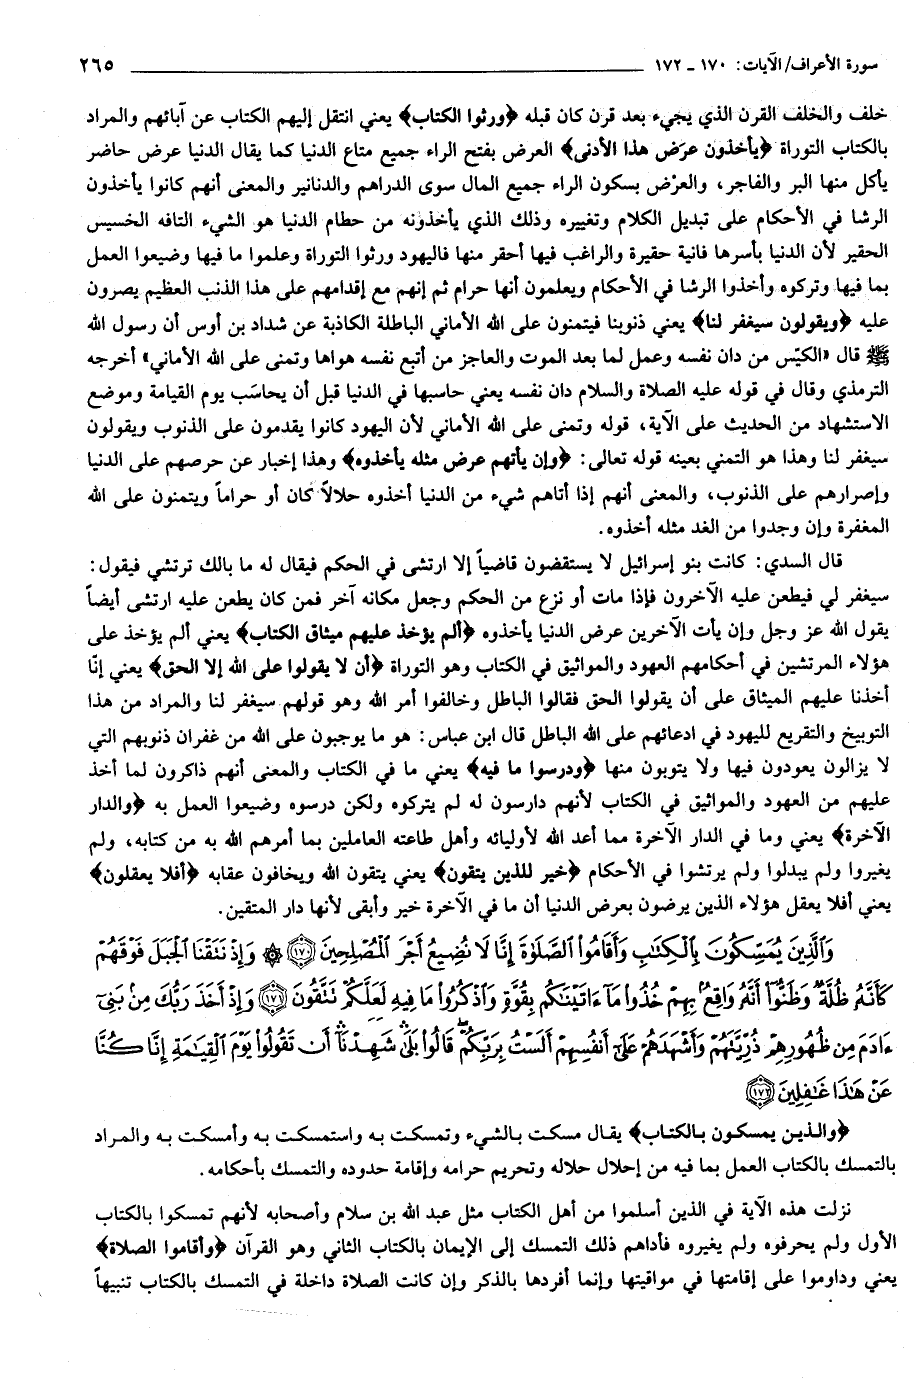 سورة الأعراف/ الآيات: ١٧٠ - ١٧٢ ٢٦٥
خلف والخلف القرن الذي يجيء بعد قرن كان قبله ﴿ورثوا الكتاب﴾ يعني انتقل إليهم الكتاب عن آبائهم والمراد
بالكتاب التوراة ﴿يأخذون عرَض هذا الأدنى﴾ العرض بفتح الراء جميع متاع الدنيا كما يقال الدنيا عرض حاضر
يأكل منها البر والفاجر، والعرْض بسكون الراء جميع المال سوى الدراهم والدنانير والمعنى أنهم كانوا يأخذون
الرشا في الأحكام على تبديل الكلام وتغييره وذلك الذي يأخذونه من حطام الدنيا هو الشيء التافه الخسيس
الحقير لأن الدنيا بأسرها فانية حقيرة والراغب فيها أحقر منها فاليهود ورثوا التوراة وعلموا ما فيها وضيعوا العمل
بما فيها وتركوه وأخذوا الرشا في الأحكام ويعلمون أنها حرام ثم إنهم مع إقدامهم على هذا الذنب العظيم يصرون
عليه ﴿ويقولون سيغفر لنا﴾ يعني ذنوبنا فيتمنون على الله الأماني الباطلة الكاذبة عن شداد بن أوس أن رسول الله
ﷺ قال «الكيّس من دان نفسه وعمل لما بعد الموت والعاجز من أتبع نفسه هواها وتمنى على الله الأماني» أخرجه
الترمذي وقال في قوله عليه الصلاة والسلام دان نفسه يعني حاسبها في الدنيا قبل أن يحاسَب يوم القيامة وموضع
الاستشهاد من الحديث على الآية، قوله وتمنى على الله الأماني لأن اليهود كانوا يقدمون على الذنوب ويقولون
سيغفر لنا وهذا هو التمني بعينه قوله تعالى: ﴿وإن يأتهم عرض مثله يأخذوه﴾ وهذا إخبار عن حرصهم على الدنيا
وإصرارهم على الذنوب، والمعنى أنهم إذا أتاهم شيء من الدنيا أخذوه حلالاً كان أو حراماً ويتمنون على الله
المغفرة وإن وجدوا من الغد مثله أخذوه.
قال السدي: كانت بنو إسرائيل لا يستقضون قاضياً إلا ارتشى في الحكم فيقال له ما بالك ترتشي فيقول:
سيغفر لي فيطعن عليه الآخرون فإذا مات أو نزع من الحكم وجعل مكانه آخر فمن كان يطعن عليه ارتشى أيضاً
يقول الله عز وجل وإن يأت الآخرين عرض الدنيا يأخذوه ﴿ألم يؤخذ عليهم ميثاق الكتاب﴾ يعني ألم يؤخذ على
هؤلاء المرتشين في أحكامهم العهود والمواثيق في الكتاب وهو التوراة ﴿أن لا يقولوا على الله إلا الحق﴾ يعني إنّا
أخذنا عليهم الميثاق على أن يقولوا الحق فقالوا الباطل وخالفوا أمر الله وهو قولهم سيغفر لنا والمراد من هذا
التوبيخ والتقريع لليهود في ادعائهم على الله الباطل قال ابن عباس: هو ما يوجبون على الله من غفران ذنوبهم التي
لا يزالون يعودون فيها ولا يتوبون منها ﴿ودرسوا ما فيه﴾ يعني ما في الكتاب والمعنى أنهم ذاكرون لما أخذ
عليهم من العهود والمواثيق في الكتاب لأنهم دارسون له لم يتركوه ولكن درسوه وضيعوا العمل به ﴿والدار
الآخرة﴾ يعني وما في الدار الآخرة مما أعد الله لأوليائه وأهل طاعته العاملين بما أمرهم الله به من كتابه، ولم
يغيروا ولم يبدلوا ولم يرتشوا في الأحكام ﴿خير للذين يتقون﴾ يعني يتقون الله ويخافون عقابه ﴿أفلا يعقلون﴾
يعني أفلا يعقل هؤلاء الذين يرضون بعرض الدنيا أن ما في الآخرة خير وأبقى لأنها دار المتقين.
وَالَّذِينَ يُمَسِّكُونَ بِالْكِتَابِ وَأَقَامُوا الصَّلَوٰةَ إِنَّا لَا نُضِيعُ أَجْرَ الْمُصْلِحِينَ ﴿١٧٠﴾ ۞ وَإِذْ نَتَقْنَا الْجَبَلَ فَوْقَهُمْ
كَأَنَّهُ ظُلَّةٌ وَظَنُّوا أَنَّهُ وَاقِعٌ بِهِمْ خُذُوا مَا ءَاتَيْنَٰكُم بِقُوَّةٍ وَاذْكُرُوا مَا فِيهِ لَعَلَّكُمْ تَتَّقُونَ ﴿١٧١﴾ وَإِذْ أَخَذَ رَبُّكَ مِنۢ بَنِىٓ
ءَادَمَ مِن ظُهُورِهِمْ ذُرِّيَّتَهُمْ وَأَشْهَدَهُمْ عَلَىٰٓ أَنفُسِهِمْ أَلَسْتُ بِرَبِّكُمْ قَالُوا بَلَىٰ شَهِدْنَآ أَن تَقُولُوا يَوْمَ الْقِيَٰمَةِ إِنَّا كُنَّا
عَنْ هَٰذَا غَٰفِلِينَ ﴿١٧٢﴾
﴿والذين يمسكون بالكتاب﴾ يقال مسكت بالشيء وتمسكت به واستمسكت به وأمسكت به والمراد
بالتمسك بالكتاب العمل بما فيه من إحلال حلاله وتحريم حرامه وإقامة حدوده والتمسك بأحكامه.
نزلت هذه الآية في الذين أسلموا من أهل الكتاب مثل عبد الله بن سلام وأصحابه لأنهم تمسكوا بالكتاب
الأول ولم يحرفوه ولم يغيروه فأداهم ذلك التمسك إلى الإيمان بالكتاب الثاني وهو القرآن ﴿وأقاموا الصلاة﴾
يعني وداوموا على إقامتها في مواقيتها وإنما أفردها بالذكر وإن كانت الصلاة داخلة في التمسك بالكتاب تنبيهاً